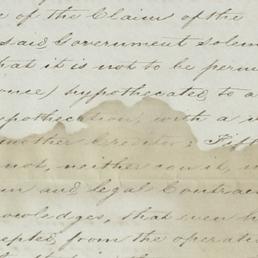 e of the Claim of the
said Government solem
hat it is not to be perm
ance) hypothecated to a
ypothecation, with a v
nother Creditor: Fift
not, neither can it, in
and legal Contrac
nowledges, that even h
cepted, from the operati